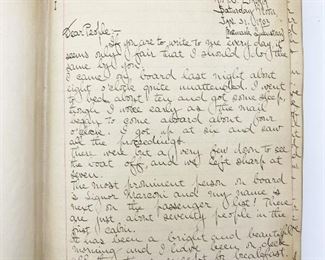 Saturday Noon
Jan. 31, 1903
Dear People:-
If you are to write to me every day it
seems only fair that I should do the
same by you.
I came on board last night about
eight o'clock quite unattended. I went
to bed about ten and got some sleep,
though I woke early as the mail
began to come aboard about four
o'clock. I got up at six and saw
all the proceedings.
There were but a very few down to see
the boat off, and we left sharp at
seven.
The most prominent person on board
is Signor Marconi and my name is
next on the passenger list! There
are just about seventy people in the
first cabin.
It has been a bright and beautiful
morning and I have been on deck
breakfast.